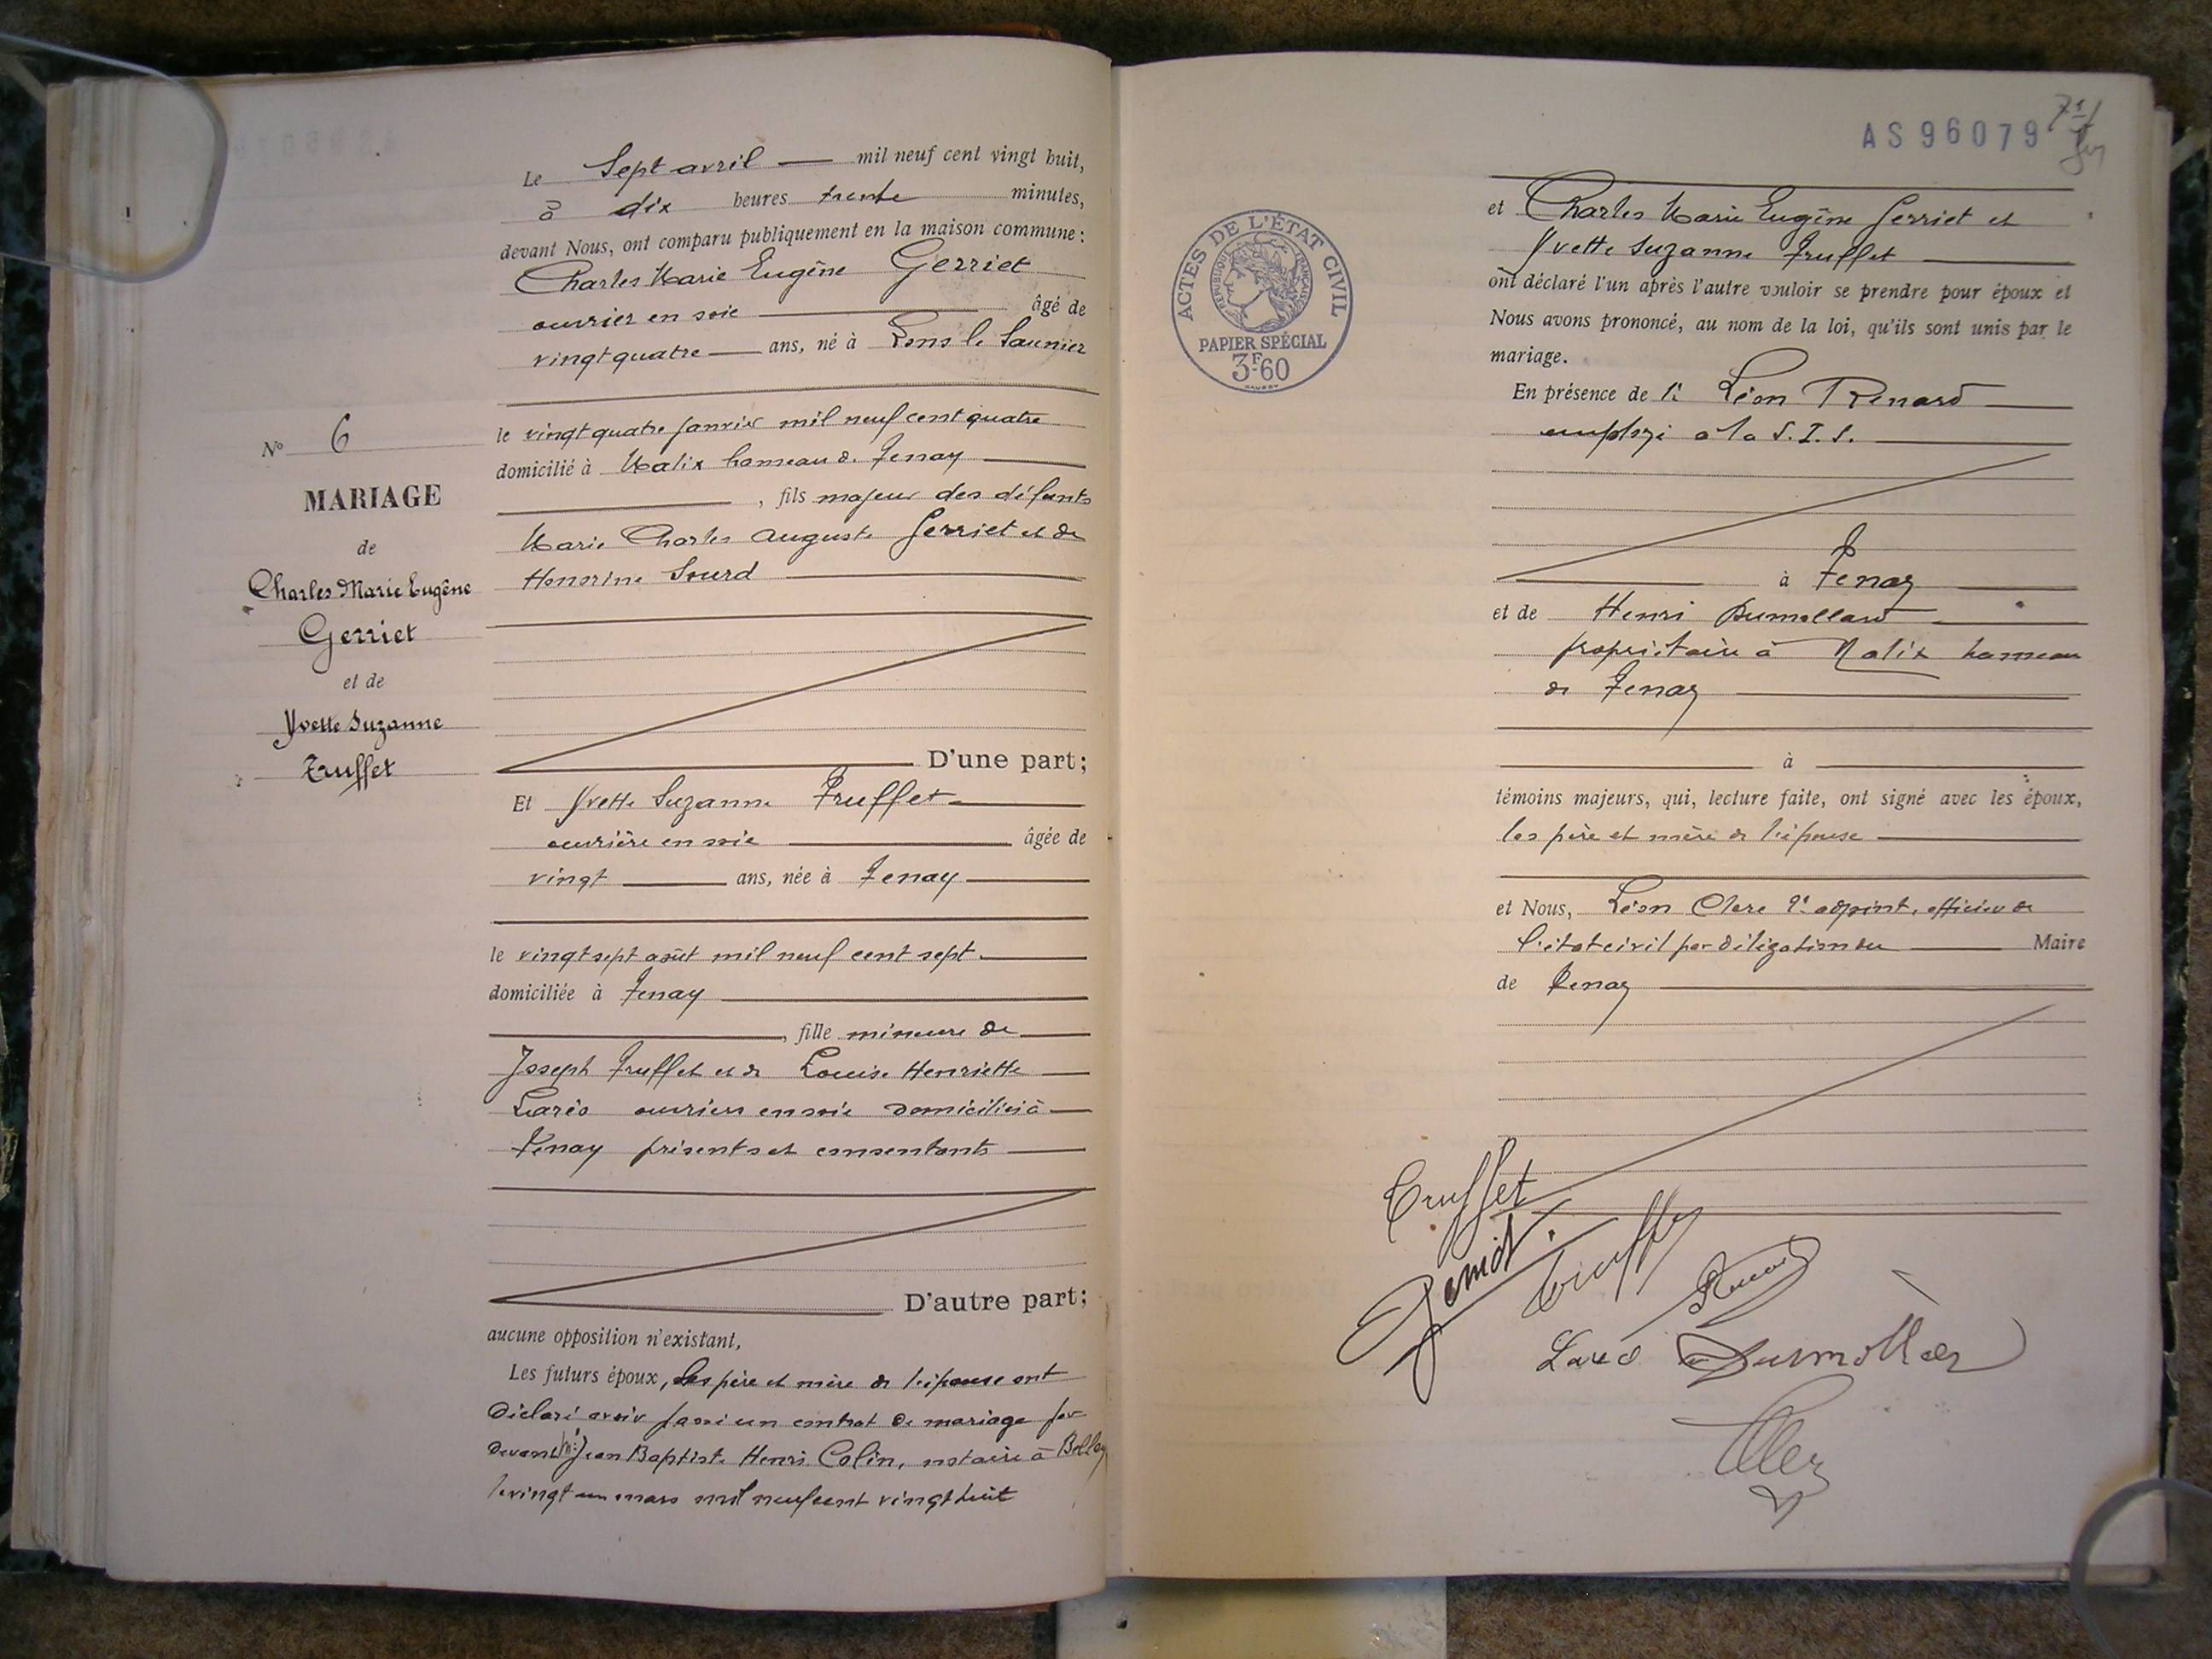 Le Sept avril mil neuf cent vingt huit,
à dix heures trente minutes,
devant Nous, ont comparu publiquement en la maison commune :
Charles Marie Eugène Gerriet
ouvrier en soie âgé de
vingt quatre ans, né à Lons le Saunier
le vingt quatre janvier mil neuf cent quatre
domicilié à Malix hameau de Tenay
, fils majeur des défunts
Marie Charles Auguste Gerriet et de
Honorine Sourd
D'une part;
Nº 6
MARIAGE
de
Charles Marie Eugène
Gerriet
et de
Yvette Suzanne
Truffet
Et Yvette Suzanne Truffet
ouvrière en soie âgée de
vingt ans, née à Tenay
le vingt sept août mil neuf cent sept
domiciliée à Tenay
, fille mineure de
Joseph Truffet et de Louise Henriette
Laréo ouvriers en soie domiciliés à
Tenay présents et consentants
D'autre part;
aucune opposition n'existant,
Les futurs époux, les père et mère de l'épouse ont
déclaré avoir passé un contrat de mariage par
devant Me Jean Baptiste Henri Colin, notaire à Belley
le vingt un mars mil neuf cent vingt huit
AS96079
ACTES DE L'ÉTAT CIVIL
RÉPUBLIQUE FRANÇAISE
PAPIER SPÉCIAL
3F60
et Charles Marie Eugène Gerriet et
Yvette Suzanne Truffet
ont déclaré l'un après l'autre vouloir se prendre pour époux et
Nous avons prononcé, au nom de la loi, qu'ils sont unis par le
mariage.
En présence de Léon Renard
employé à la S.I.S.
à Tenay
et de Henri Dumollard
propriétaire à Malix hameau
de Tenay
à
témoins majeurs, qui, lecture faite, ont signé avec les époux,
les père et mère de l'épouse
et Nous, Léon Clerc adjoint, officier de
l'état civil par délégation du Maire
de Tenay
Truffet
Truffet
Renard
Dumollard
Clerc